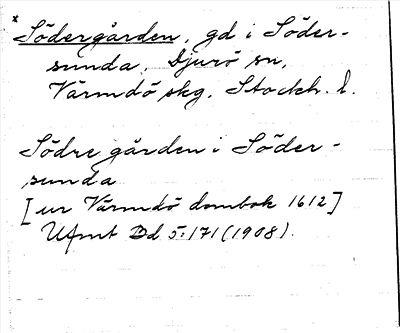 * Södergården, gd i Söder-
sunda, Djurö sn,
Värmdö skg. Stockh. l.
Södre gården i Söder-
sunda
[ur Värmdö dombok 1612]
Ufmt Bd 5:171 (1908).